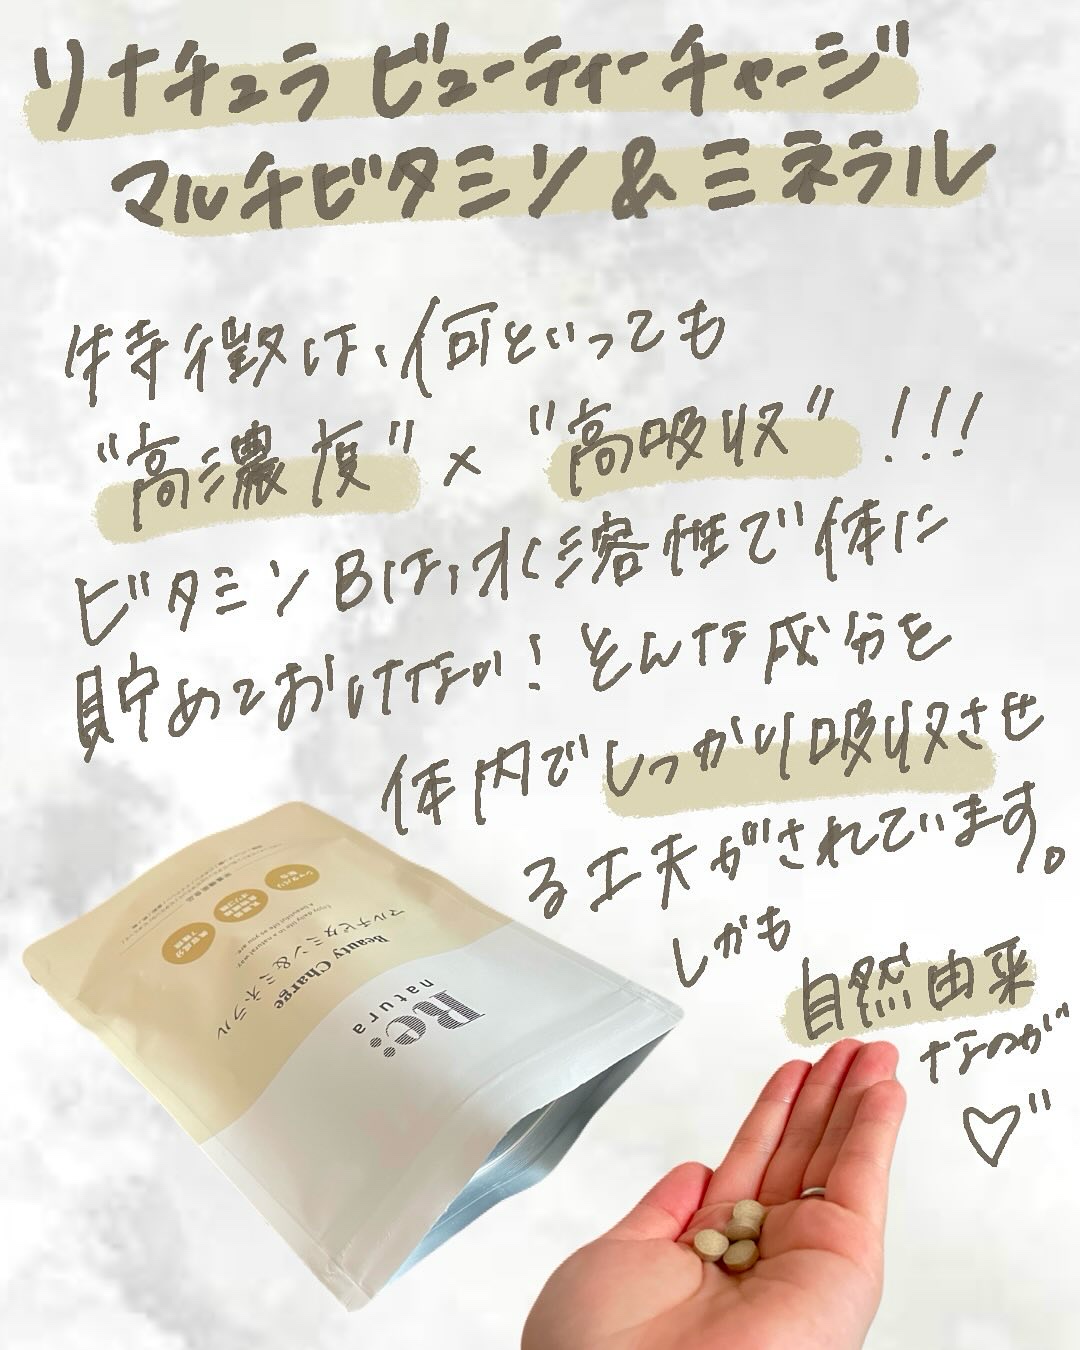 リナチュラ ビューティーチャージ
マルチビタミン & ミネラル
特徴は、何といっても
"高濃度" × "高吸収" !!!
ビタミンBは、水溶性で体に
貯めておけない! そんな成分を
体内でしっかり吸収させ
る工夫がされています。
しかも
自然由来
なのが
♡"
Re:
natura
Beauty Charge
マルチビタミン&ミネラル
Enjoy daily life in a natural way.
A beautiful life as you are.
栄養機能食品